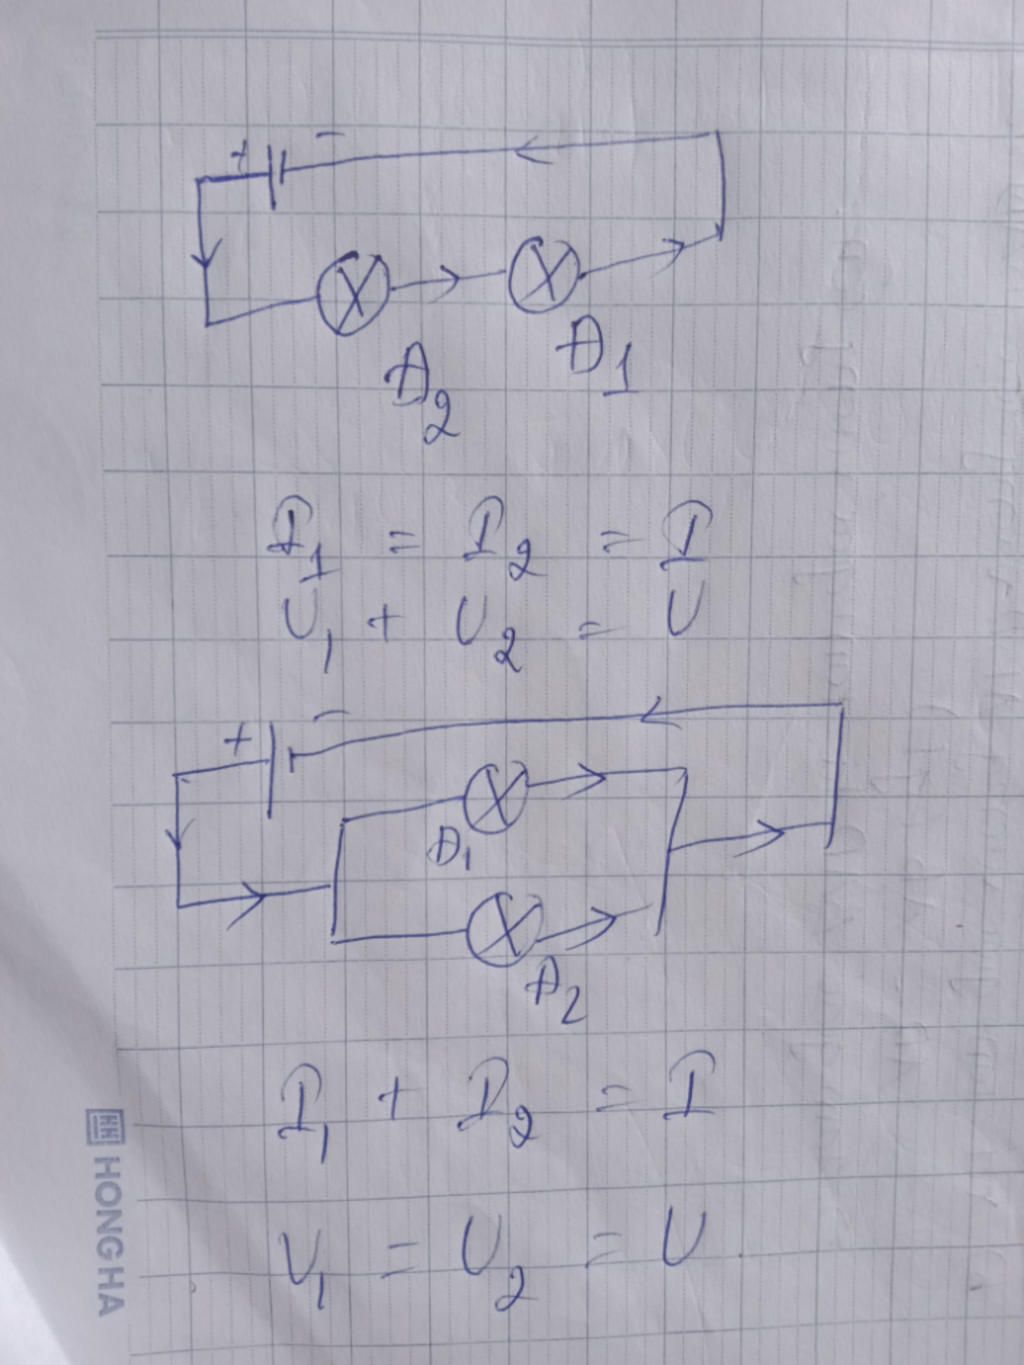 + -
Đ2 Đ1
I1 = I2 = I
U1 + U2 = U
+ -
Đ1
Đ2
I1 + I2 = I
U1 = U2 = U
HH HONG HA